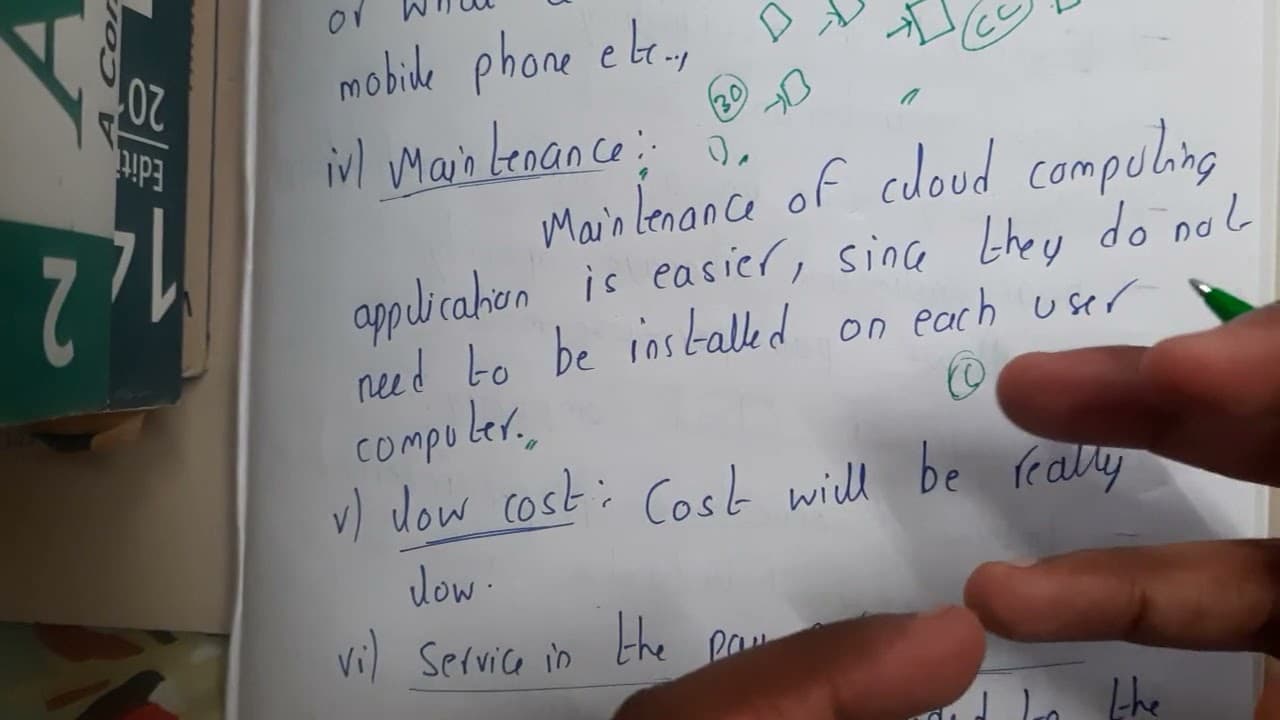 or what
mobile phone etc..,
CC
30
iv) Maintenance:
Maintenance of cloud computing
application is easier, since they do not
need to be installed on each user
CC
computer.
v) Low cost: Cost will be really
low.
vi) Service in the
to the
A Con
20
Editi
14
2